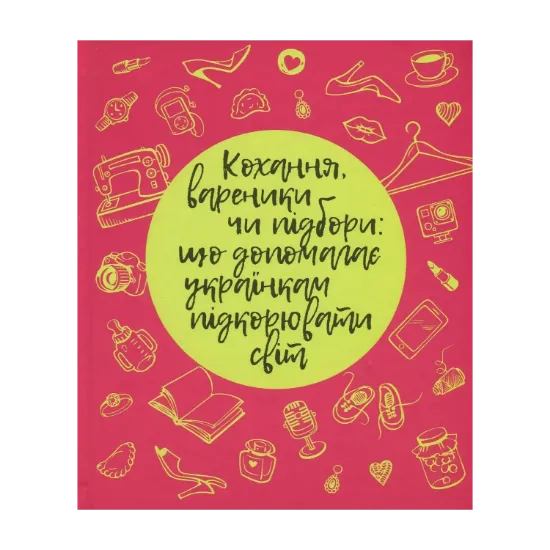 Кохання,
вареники
чи підбори:
що допомагає
українкам
підкорювати
світ